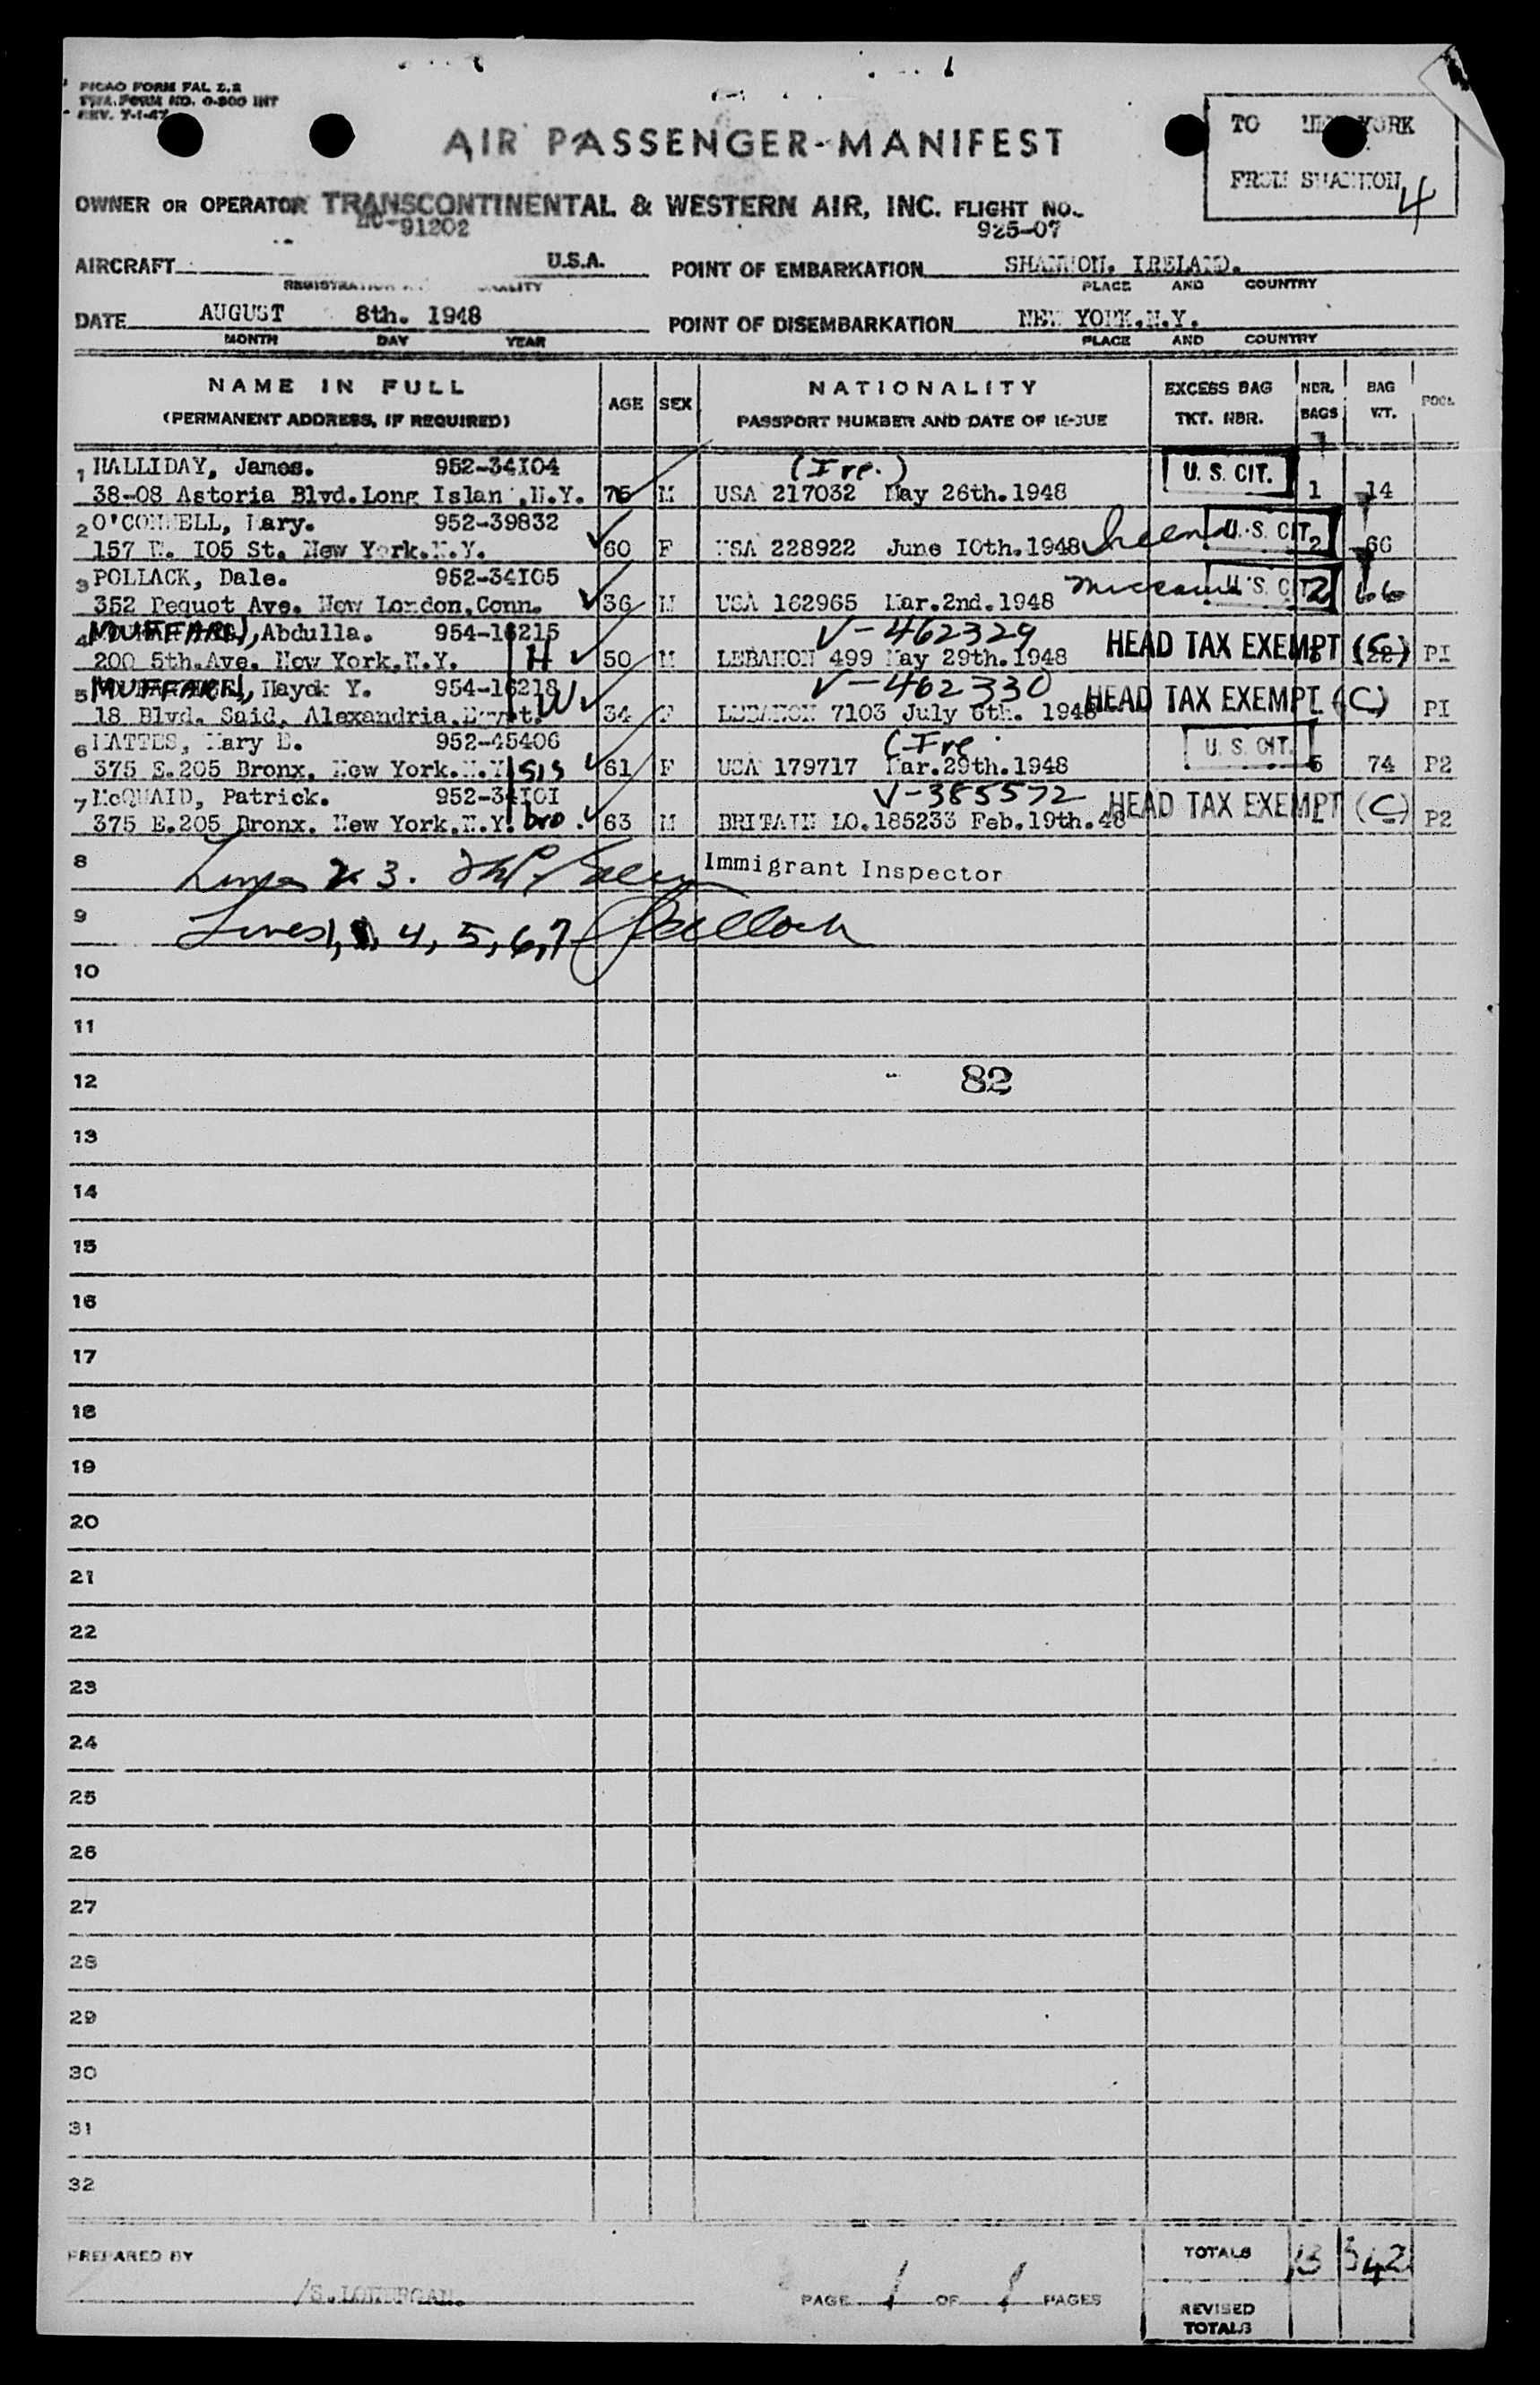 PICAO FORM FAL 2.2
TWA FORM NO. 0-800 INT
REV. 7-1-47
TO NEW YORK
FROM SHANNON
4
AIR PASSENGER-MANIFEST
OWNER OR OPERATOR TRANSCONTINENTAL & WESTERN AIR, INC. FLIGHT NO.
NC-91202 925-07
AIRCRAFT U.S.A. POINT OF EMBARKATION SHANNON. IRELAND.
REGISTRATION PLACE AND COUNTRY
DATE AUGUST 8th. 1948 POINT OF DISEMBARKATION NEW YORK.N.Y.
MONTH DAY YEAR PLACE AND COUNTRY
NAME IN FULL AGE SEX NATIONALITY EXCESS BAG NBR. BAG POOL
(PERMANENT ADDRESS, IF REQUIRED) PASSPORT NUMBER AND DATE OF ISSUE TKT. NBR. BAGS WT.
1 HALLIDAY, James. 952-34I04 (Ire.) U.S. CIT.
38-08 Astoria Blvd.Long Islan ,N.Y. 75 M USA 217032 May 26th.1948 1 14
2 O'CONNELL, Mary. 952-39832 U.S. CIT.
157 E. I05 St. New York.N.Y. 60 F USA 228922 June I0th.1948 2 66
3 POLLACK, Dale. 952-34I05 U.S. CIT.
352 Pequot Ave. New London,Conn. 36 M USA 162965 Mar.2nd.1948 Missouri 2 66
4 MOUFFAREJ, Abdulla. 954-16215 V-462329 HEAD TAX EXEMPT (C)
200 5th.Ave. New York.N.Y. H 50 M LEBANON 499 May 29th.1948 PI
5 Hayek Y. 954-16218 V-462330 HEAD TAX EXEMPT (C)
18 Blvd. Said. Alexandria.Egypt. W 34 F LEBANON 7103 July 6th. 1948 PI
6 MATTES, Mary E. 952-45406 (Ire. U.S. CIT.
375 E.205 Bronx. New York.N.Y. sis 61 F USA 179717 Mar.29th.1948 5 74 P2
7 McQUAID, Patrick. 952-34I0I V-385572 HEAD TAX EXEMPT (C)
375 E.205 Bronx. New York.N.Y. bro. 63 M BRITAIN LO.185233 Feb.19th.48 P2
8 Lines 2 3. Immigrant Inspector
9 Lines 1, 4, 5, 6, 7
10
11
12 82
13
14
15
16
17
18
19
20
21
22
23
24
25
26
27
28
29
30
31
32
PREPARED BY TOTALS 13 342
/S.LONERGAN. PAGE 1 OF 1 PAGES
REVISED
TOTALS